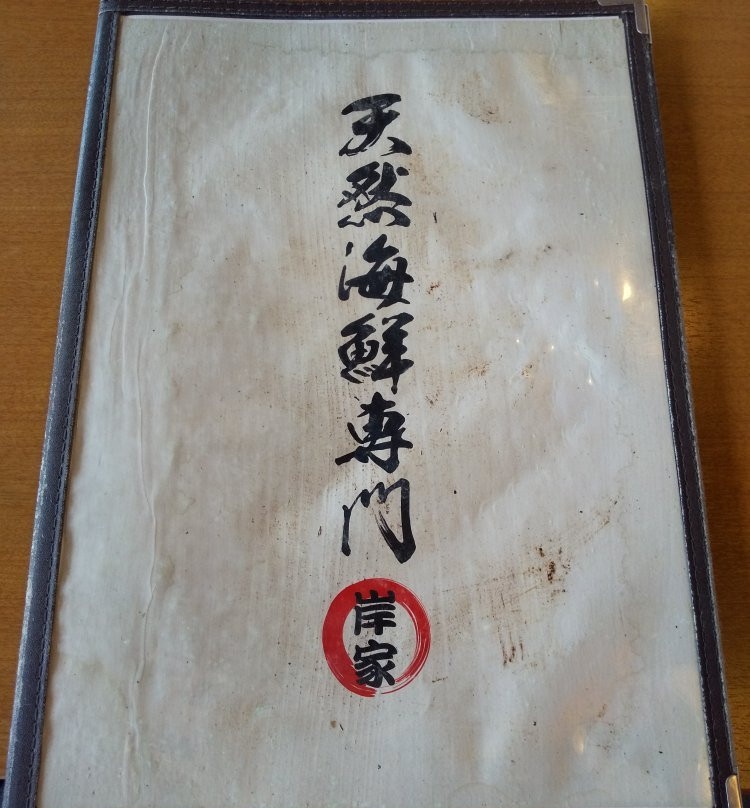 天然海鮮専門
岸家